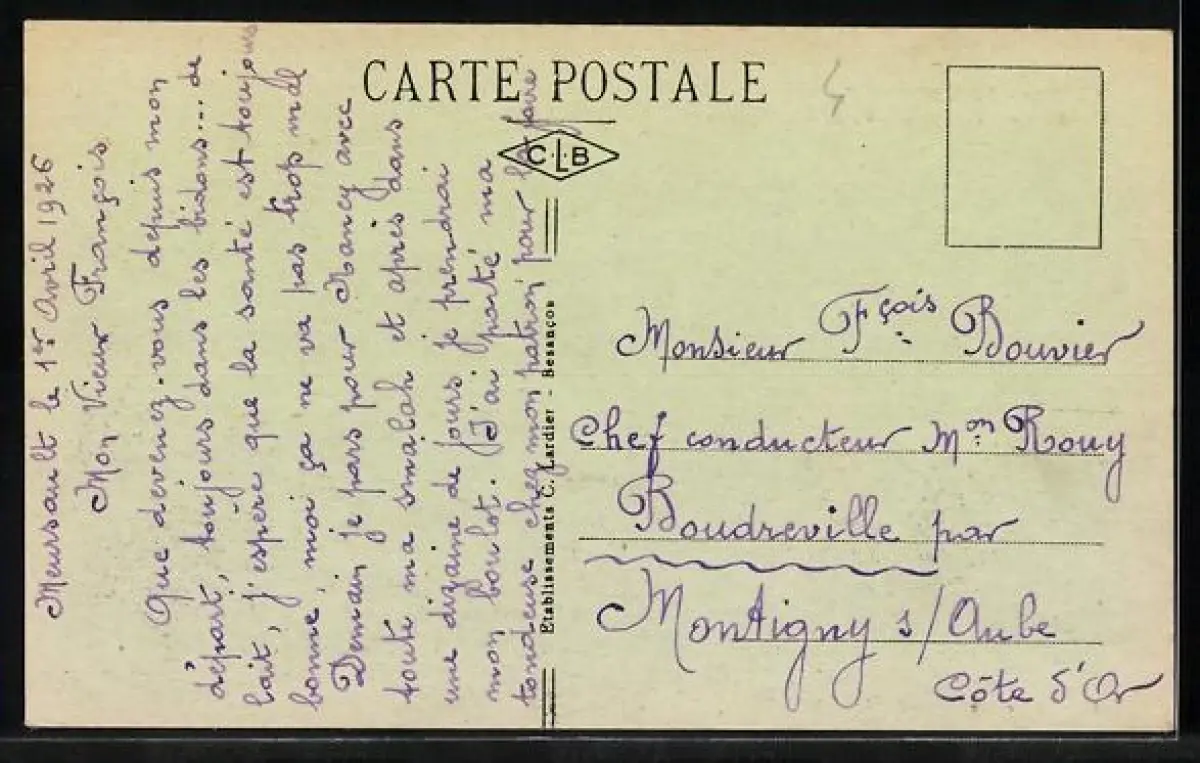 CARTE POSTALE
C.L.B
Meursault le 1er Avril 1926
Mon Vieux François
Que devenez-vous depuis mon
départ, toujours dans les bidons... de
lait, j'espère que la santé est toujours
bonne, moi ça ne va pas trop mal
Demain je pars pour Nancy avec
toute ma smalah et après dans
une dizaine de jours je prendrai
mon boulot. J'ai porté ma
tondeuse chez mon patron pour la faire
Etablissements C. Lardier - Besançon
Monsieur Fçois Bouvier
Chef conducteur Mon Rouy
Boudreville par
Montigny s/Aube
Côte d'Or